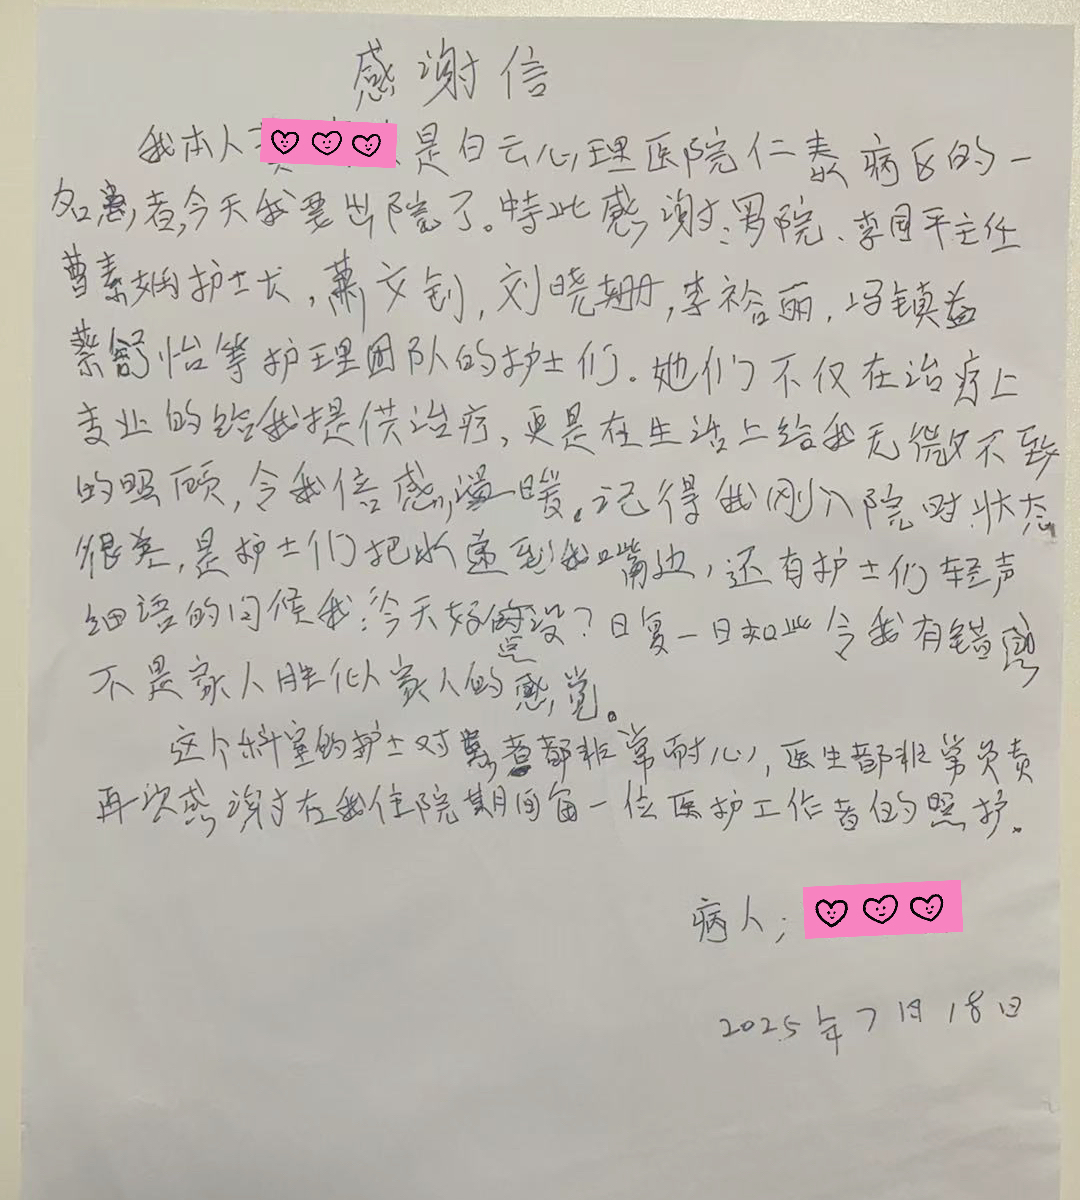 感谢信
我本人 是白云心理医院仁泰病区的一
名患者,今天我要出院了。特此感谢:罗院、李国平主任
曹素娟护士长,萧文钊,刘晓珊,李裕丽,冯镇益
蔡舒怡等护理团队的护士们。她们不仅在治疗上
专业的给我提供治疗,更是在生活上给我无微不至
的照顾,令我倍感温暖。记得我刚入院时状态
很差,是护士们把水递到我嘴边,还有护士们轻声
细语的问候我:今天好点没?日复一日如此令我有错感
不是家人胜似家人的感觉。
这个科室的护士对患者都非常耐心,医生都非常负责
再次感谢在我住院期间每一位医护工作者的照护。
病人;
2025年7月18日